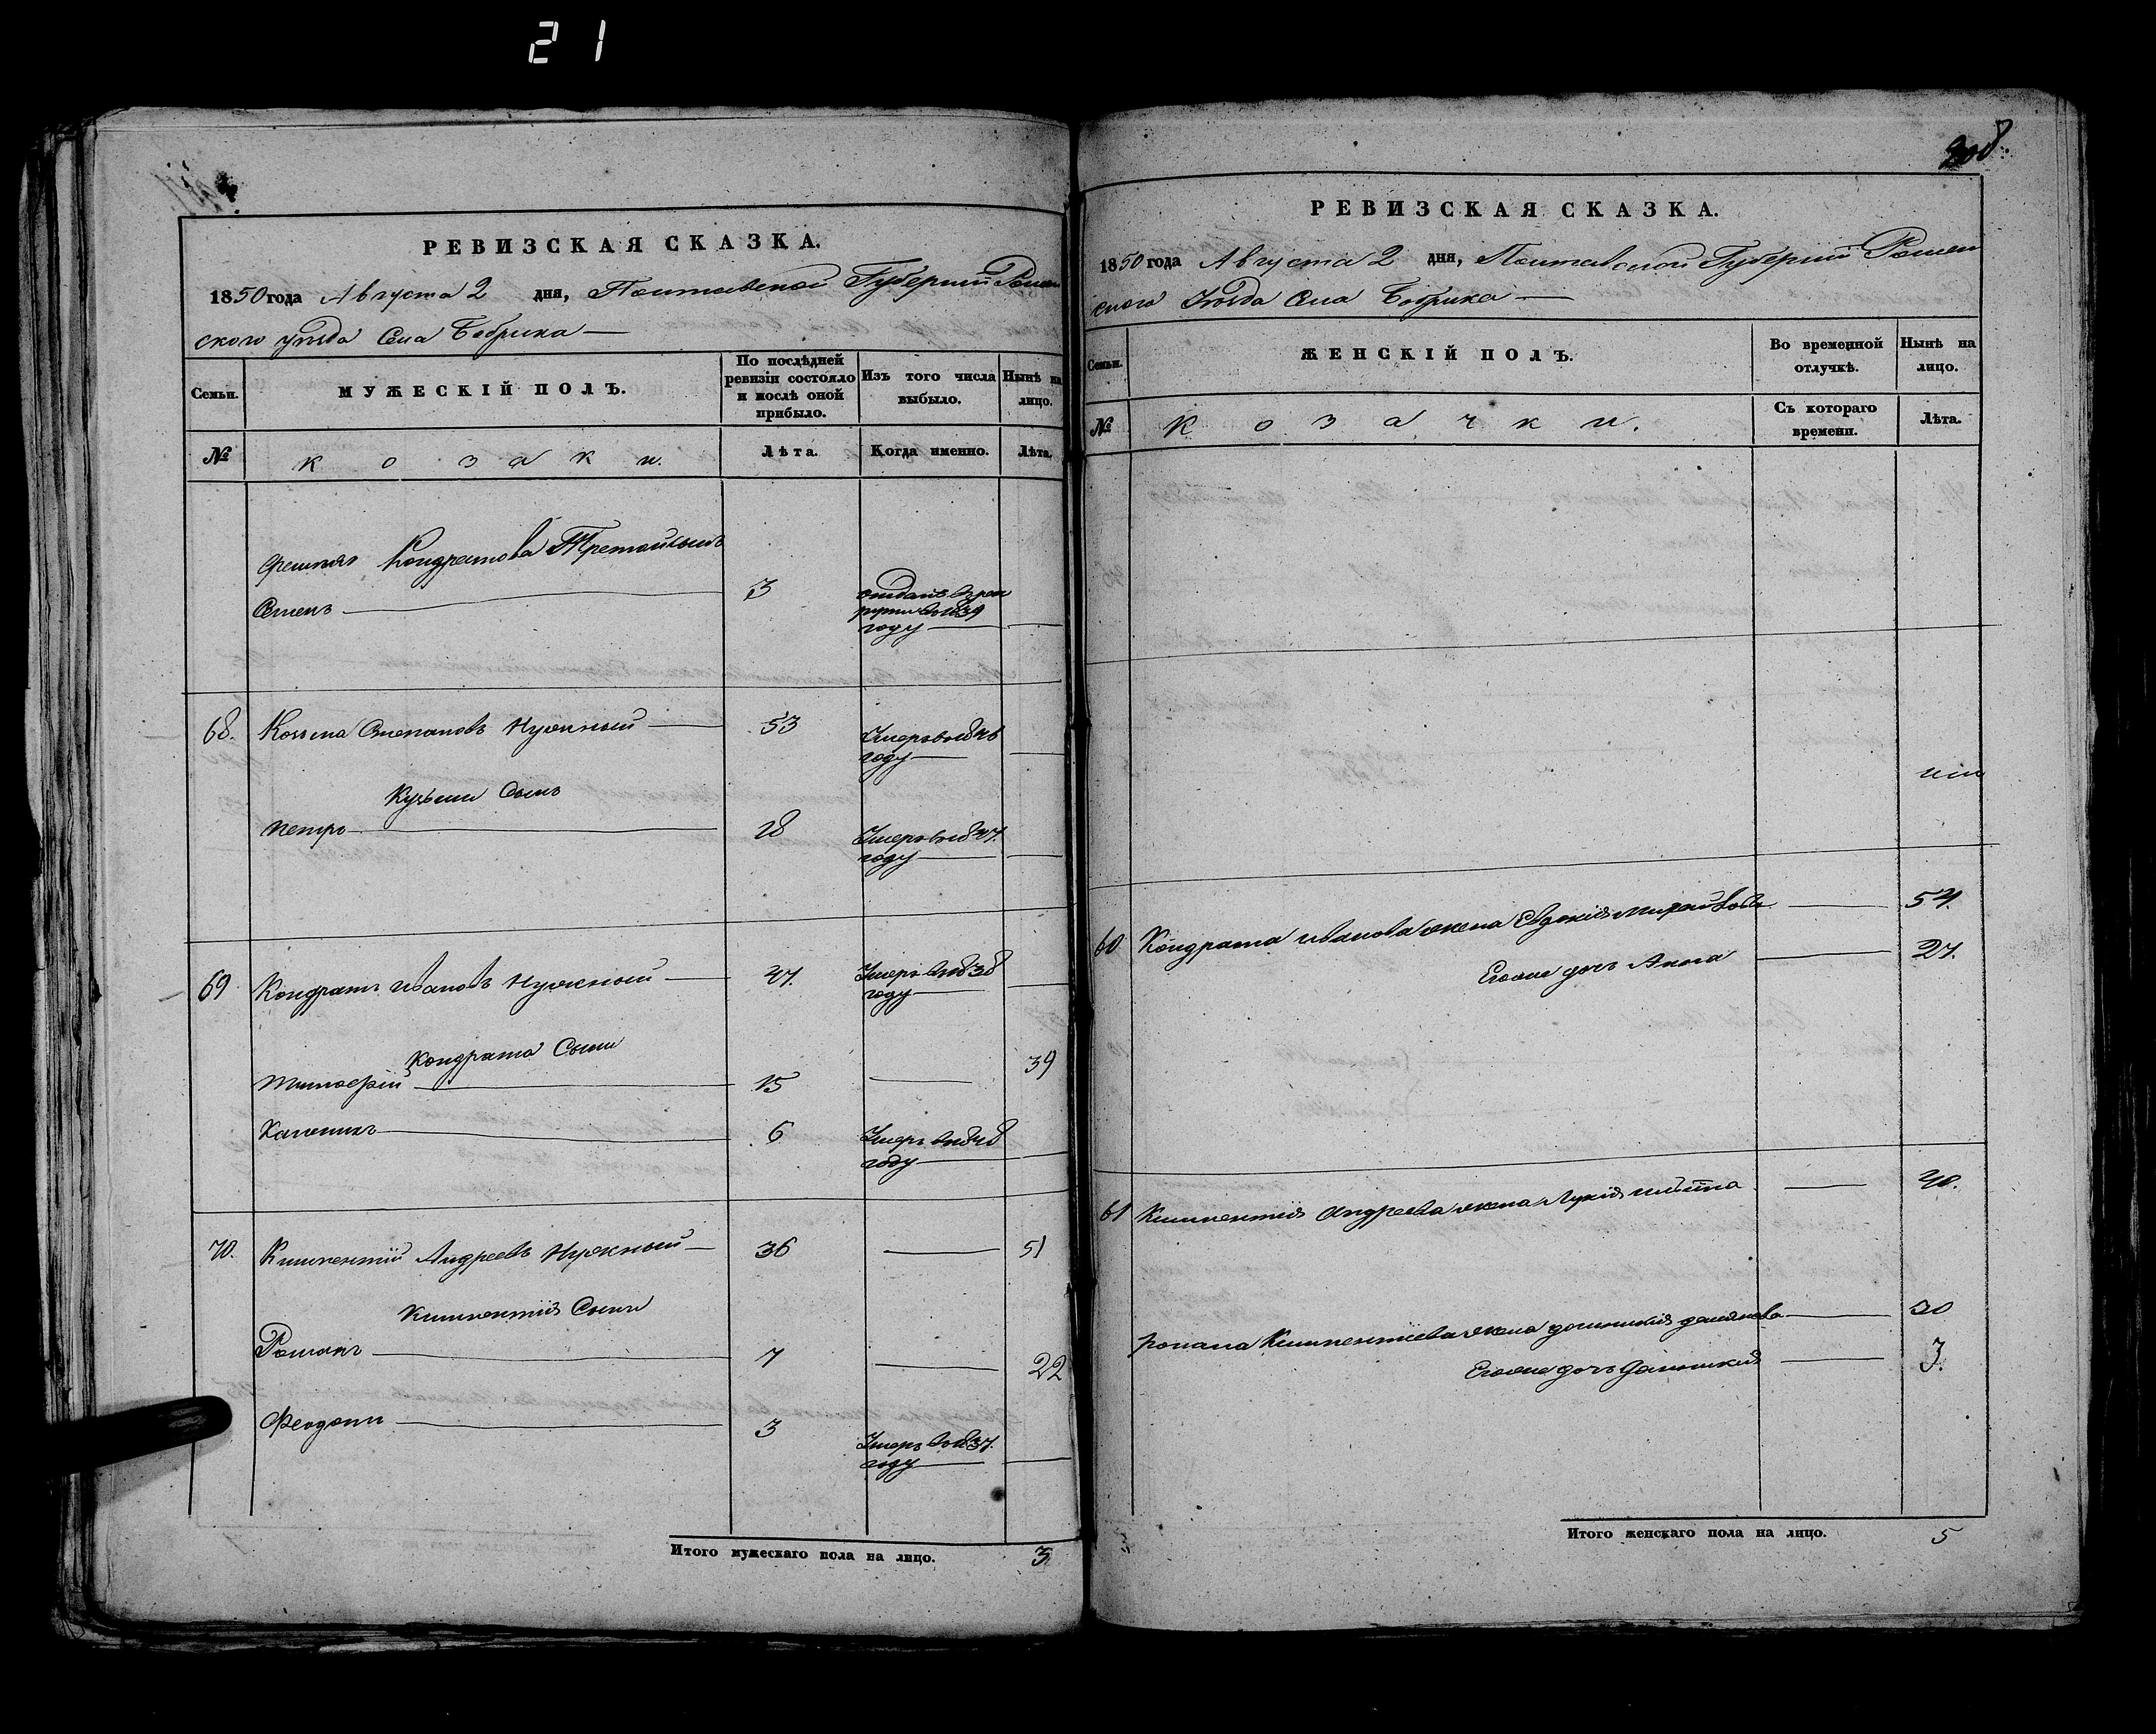 21
РЕВИЗСКАЯ СКАЗКА.
1850 года Августа 2 дня, Полтавской Губернии Ромен
ского уезда Села Бобрика —
Семьи.
МУЖЕСКІЙ ПОЛЪ.
По послѣдней ревизіи состояло и послѣ оной прибыло.
Изъ того числа выбыло.
Нынѣ на лицо.
№
козаки.
Лѣта.
Когда именно.
Лѣта.
Кондратова
Семенъ — 3 отданъ въ рек
руты въ 1839
году —
68. Козьма Степановъ Нужный — 53 Умеръ въ 18
году —
Кузьмы Сынъ
Петръ — 18 Умеръ въ 1847.
году —
69 Кондратъ Ивановъ Нужный — 47. Умеръ въ 1838
году —
Кондрата Сыни
Тимофѣй — 15 — 39
Каленикъ — 6 Умеръ въ 1848
году —
70. Климентій Андреевъ Нужный — 36 — 51
Климентія Сыни
Романъ — 7 — 22
Феодоти — 3 Умеръ въ 1837.
году —
Итого мужескаго пола на лицо. 3
208.
РЕВИЗСКАЯ СКАЗКА.
1850 года Августа 2 дня, Полтавской Губерніи Ромен
ского Уѣзда Села Бобрика —
Семьи.
ЖЕНСКІЙ ПОЛЪ.
Во временной отлучкѣ.
Нынѣ на лицо.
№
козачки.
Съ котораго времени.
Лѣта.
Кондрата Иванова жена Евдокия Михайлова — 54.
Егоже дочь Анна — 27.
Климентия Андреева жена Лукия — 40.
Романа Климентіева жена Домникия Дамянова — 20
Егоже дочь Домникия — 3.
Итого женскаго пола на лицо. 5